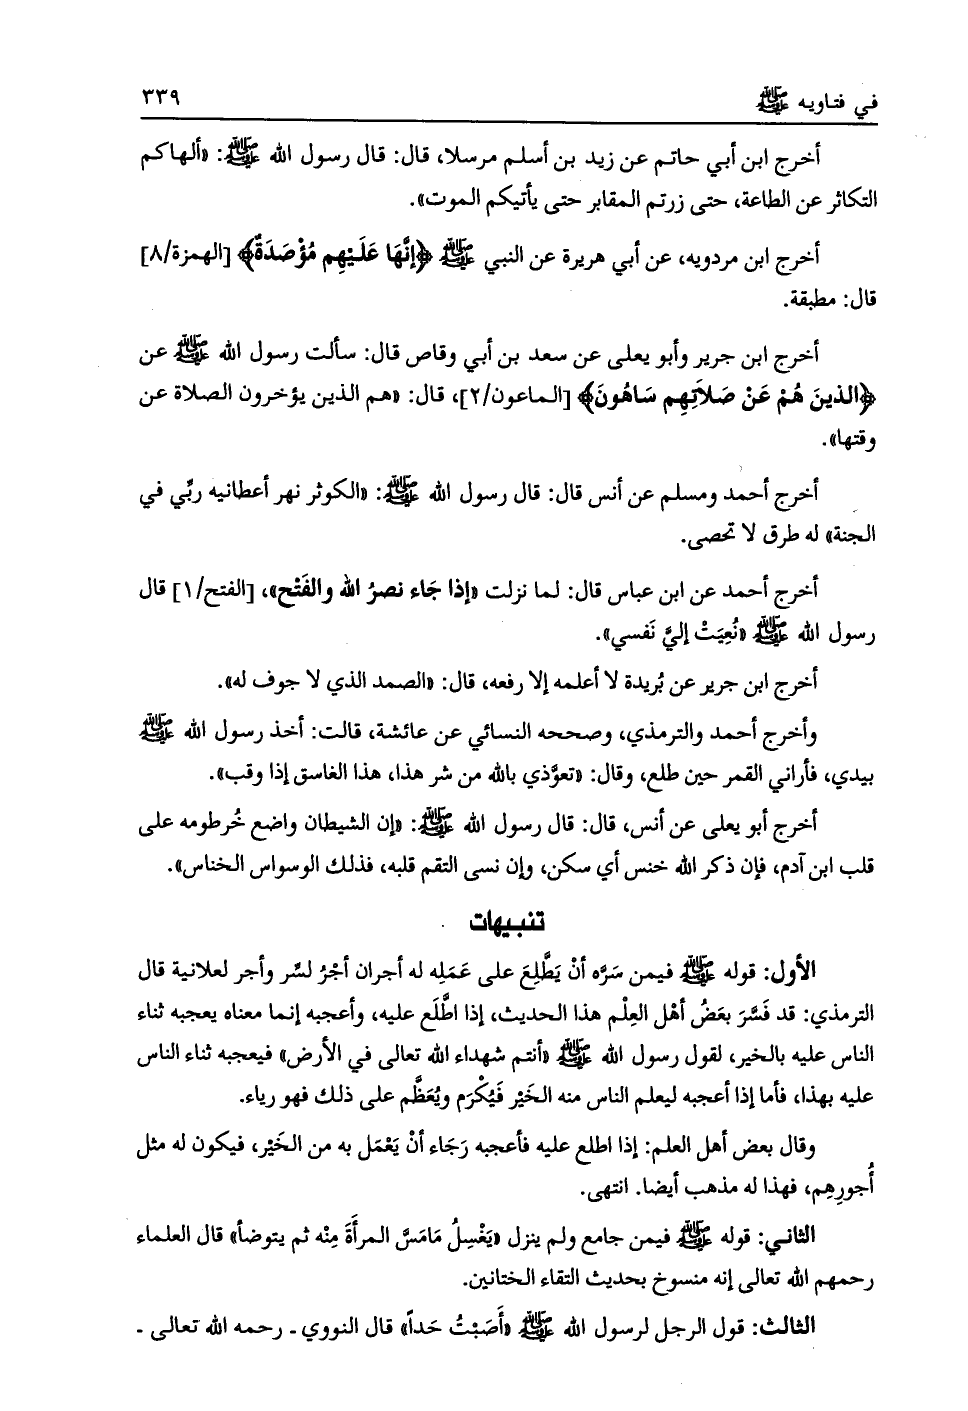 في فتاويه ﷺ ٣٣٩
أخرج ابن أبي حاتم عن زيد بن أسلم مرسلا، قال: قال رسول الله ﷺ: «ألهاكم
التكاثر عن الطاعة، حتى زرتم المقابر حتى يأتيكم الموت».
أخرج ابن مردويه، عن أبي هريرة عن النبي ﷺ ﴿إنَّهَا عَلَيْهِم مُؤْصَدَةٌ﴾ [الهمزة/٨]
قال: مطبقة.
أخرج ابن جرير وأبو يعلى عن سعد بن أبي وقاص قال: سألت رسول الله ﷺ عن
﴿الذينَ هُمْ عَنْ صَلاَتِهِم سَاهُونَ﴾ [الماعون/٢]، قال: «هم الذين يؤخرون الصلاة عن
وقتها».
أخرج أحمد ومسلم عن أنس قال: قال رسول الله ﷺ: «الكوثر نهر أعطانيه ربِّي في
الجنة» له طرق لا تحصى.
أخرج أحمد عن ابن عباس قال: لما نزلت «إذا جَاء نصرُ الله والفَتْح»، [الفتح/١] قال
رسول الله ﷺ «نُعِيَتْ إليَّ نَفسي».
أخرج ابن جرير عن بُريدة لا أعلمه إلا رفعه، قال: «الصمد الذي لا جوف له».
وأخرج أحمد والترمذي، وصححه النسائي عن عائشة، قالت: أخذ رسول الله ﷺ
بيدي، فأراني القمر حين طلع، وقال: «تعوَّذي بالله من شر هذا، هذا الغاسق إذا وقب».
أخرج أبو يعلى عن أنس، قال: قال رسول الله ﷺ: «إن الشيطان واضع خُرطومه على
قلب ابن آدم، فإن ذكر الله خنس أي سكن، وإن نسى التقم قلبه، فذلك الوسواس الخناس».
تنبيهات
الأول: قوله ﷺ فيمن سَرَّه أنْ يَطَّلِعَ على عَمَلِه له أجران أجْرُ لسِّر وأجر لعلانية قال
الترمذي: قد فَسَّرَ بعَضُ أهْل العِلْم هذا الحديث، إذا اطَّلَع عليه، وأعجبه إنما معناه يعجبه ثناء
الناس عليه بالخير، لقول رسول الله ﷺ «أنتم شهداء الله تعالى في الأرض» فيعجبه ثناء الناس
عليه بهذا، فأما إذا أعجبه ليعلم الناس منه الخَيْر فَيُكْرَم ويُعَظَّم على ذلك فهو رياء.
وقال بعض أهل العلم: إذا اطلع عليه فأعجبه رَجَاء أنْ يَعْمَل به من الخَيْر، فيكون له مثل
أُجورِهِم، فهذا له مذهب أيضا. انتهى.
الثاني: قوله ﷺ فيمن جامع ولم ينزل «يَغْسِلُ مَامَسَّ المرأَةَ مِنْه ثم يتوضأ» قال العلماء
رحمهم الله تعالى إنه منسوخ بحديث التقاء الختانين.
الثالث: قول الرجل لرسول الله ﷺ «أَصَبْتُ حَداً» قال النووي ـ رحمه الله تعالى ـ